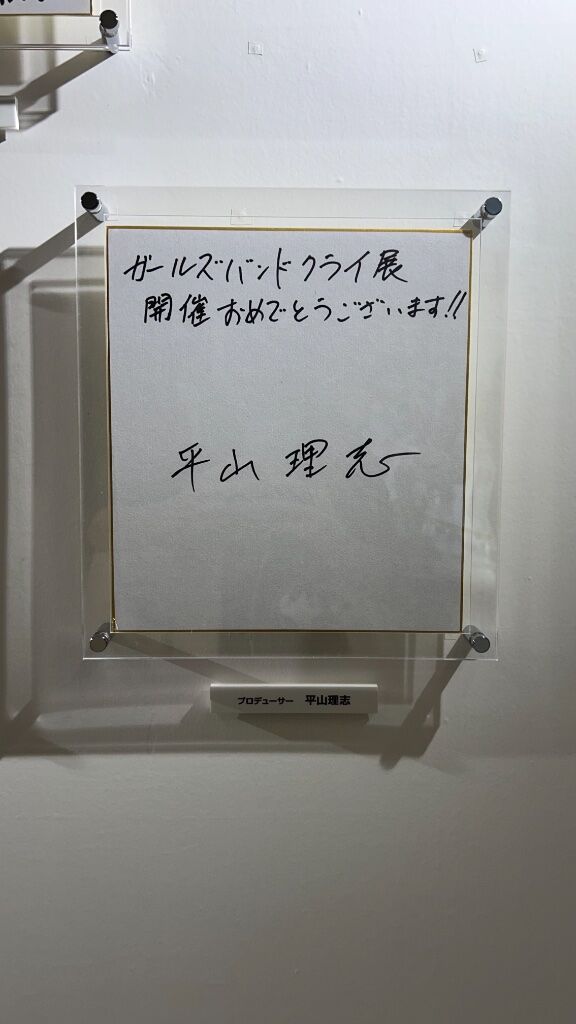 ガールズバンドクライ展
開催おめでとうございます!!
平山理志
プロデューサー 平山理志